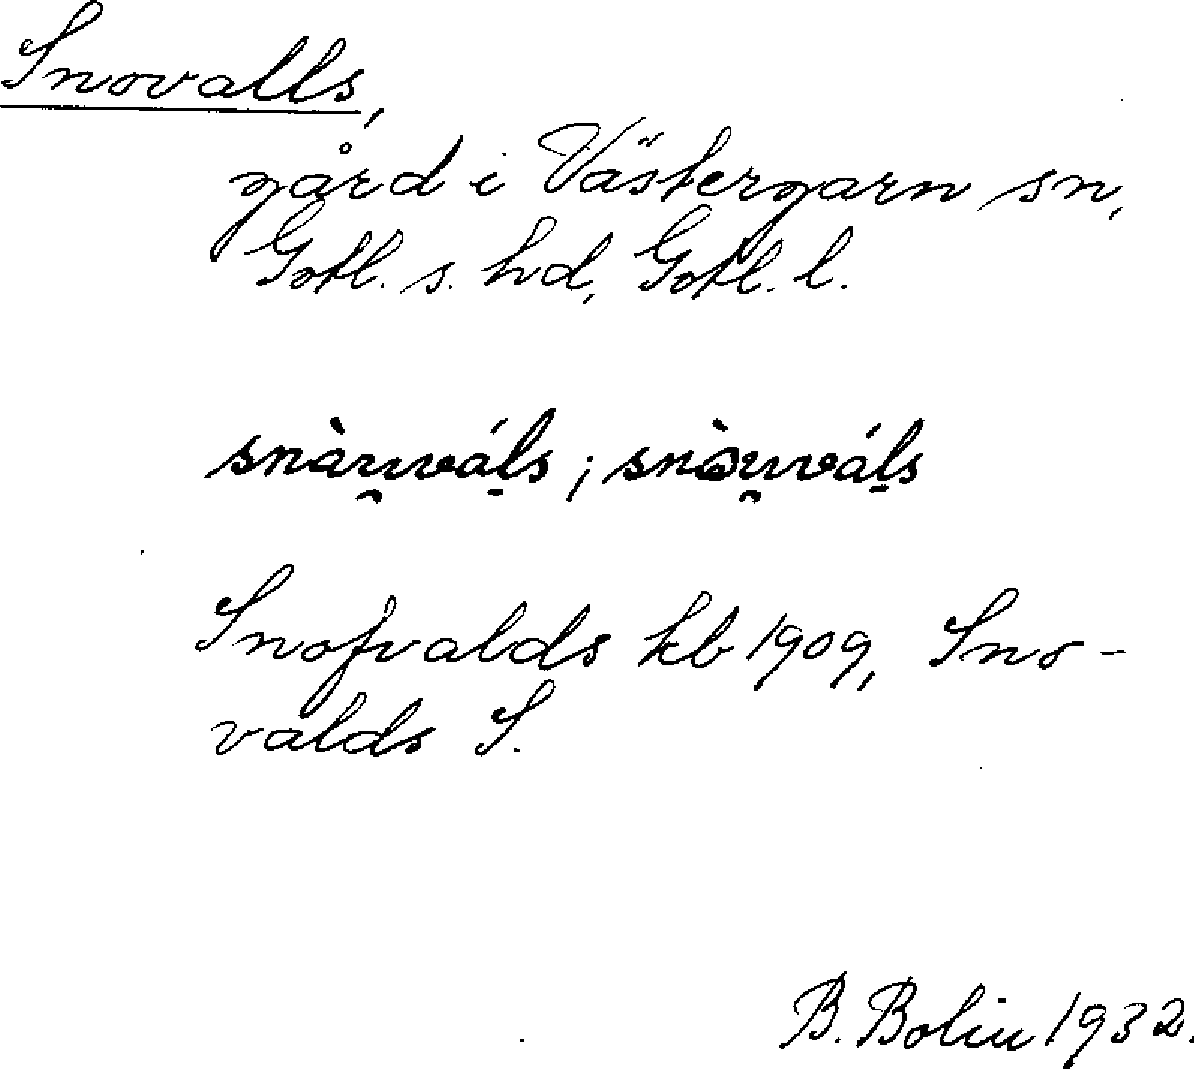 Snovalls,
gård i Västergarn sn,
Gotl. s. hd, Gotl. l.
snàu̯váls; snòu̯váls
Snofvalds kb 1909, Sno-
valds S.
B. Bolin 1932.